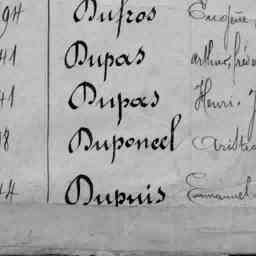 94 Dufros Eugène
41 Dupas
41 Dupas Henri. J
8 Duponeel Aristi
44 Dupuis Emmanuel